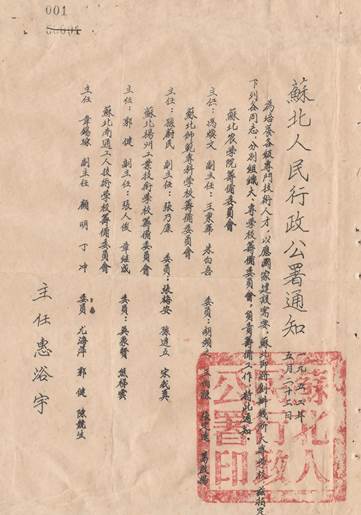 001
蘇北人民行政公署通知
一九五二年
五月二十二日
為培養各級專門技術人才，以應國家建設需要，蘇北即將創辦幾所大專學校，兹指定
下列各同志，分別組織大、專學校籌備委員會，負責籌備工作，特此通知。
蘇北農學院籌備委員會
主任：馮煥文 副主任：王東藩 朱白吾 委員：
蘇北師範專科學校籌備委員會
主任：孫蔚民 副主任：張乃康 委員：張梅安 孫達五 宋我真
蘇北揚州工業技術學校籌備委員會
主任：郭健 副主任：張人俊 章继成 委員：吳聚賢 熊梯雲
蘇北南通工人技術學校籌備委員會
主任 章錫緣 副主任 顧明 丁冲 委員 尤海萍 郭健 陳競生
主任惠浴宇
蘇北人民行政公署印